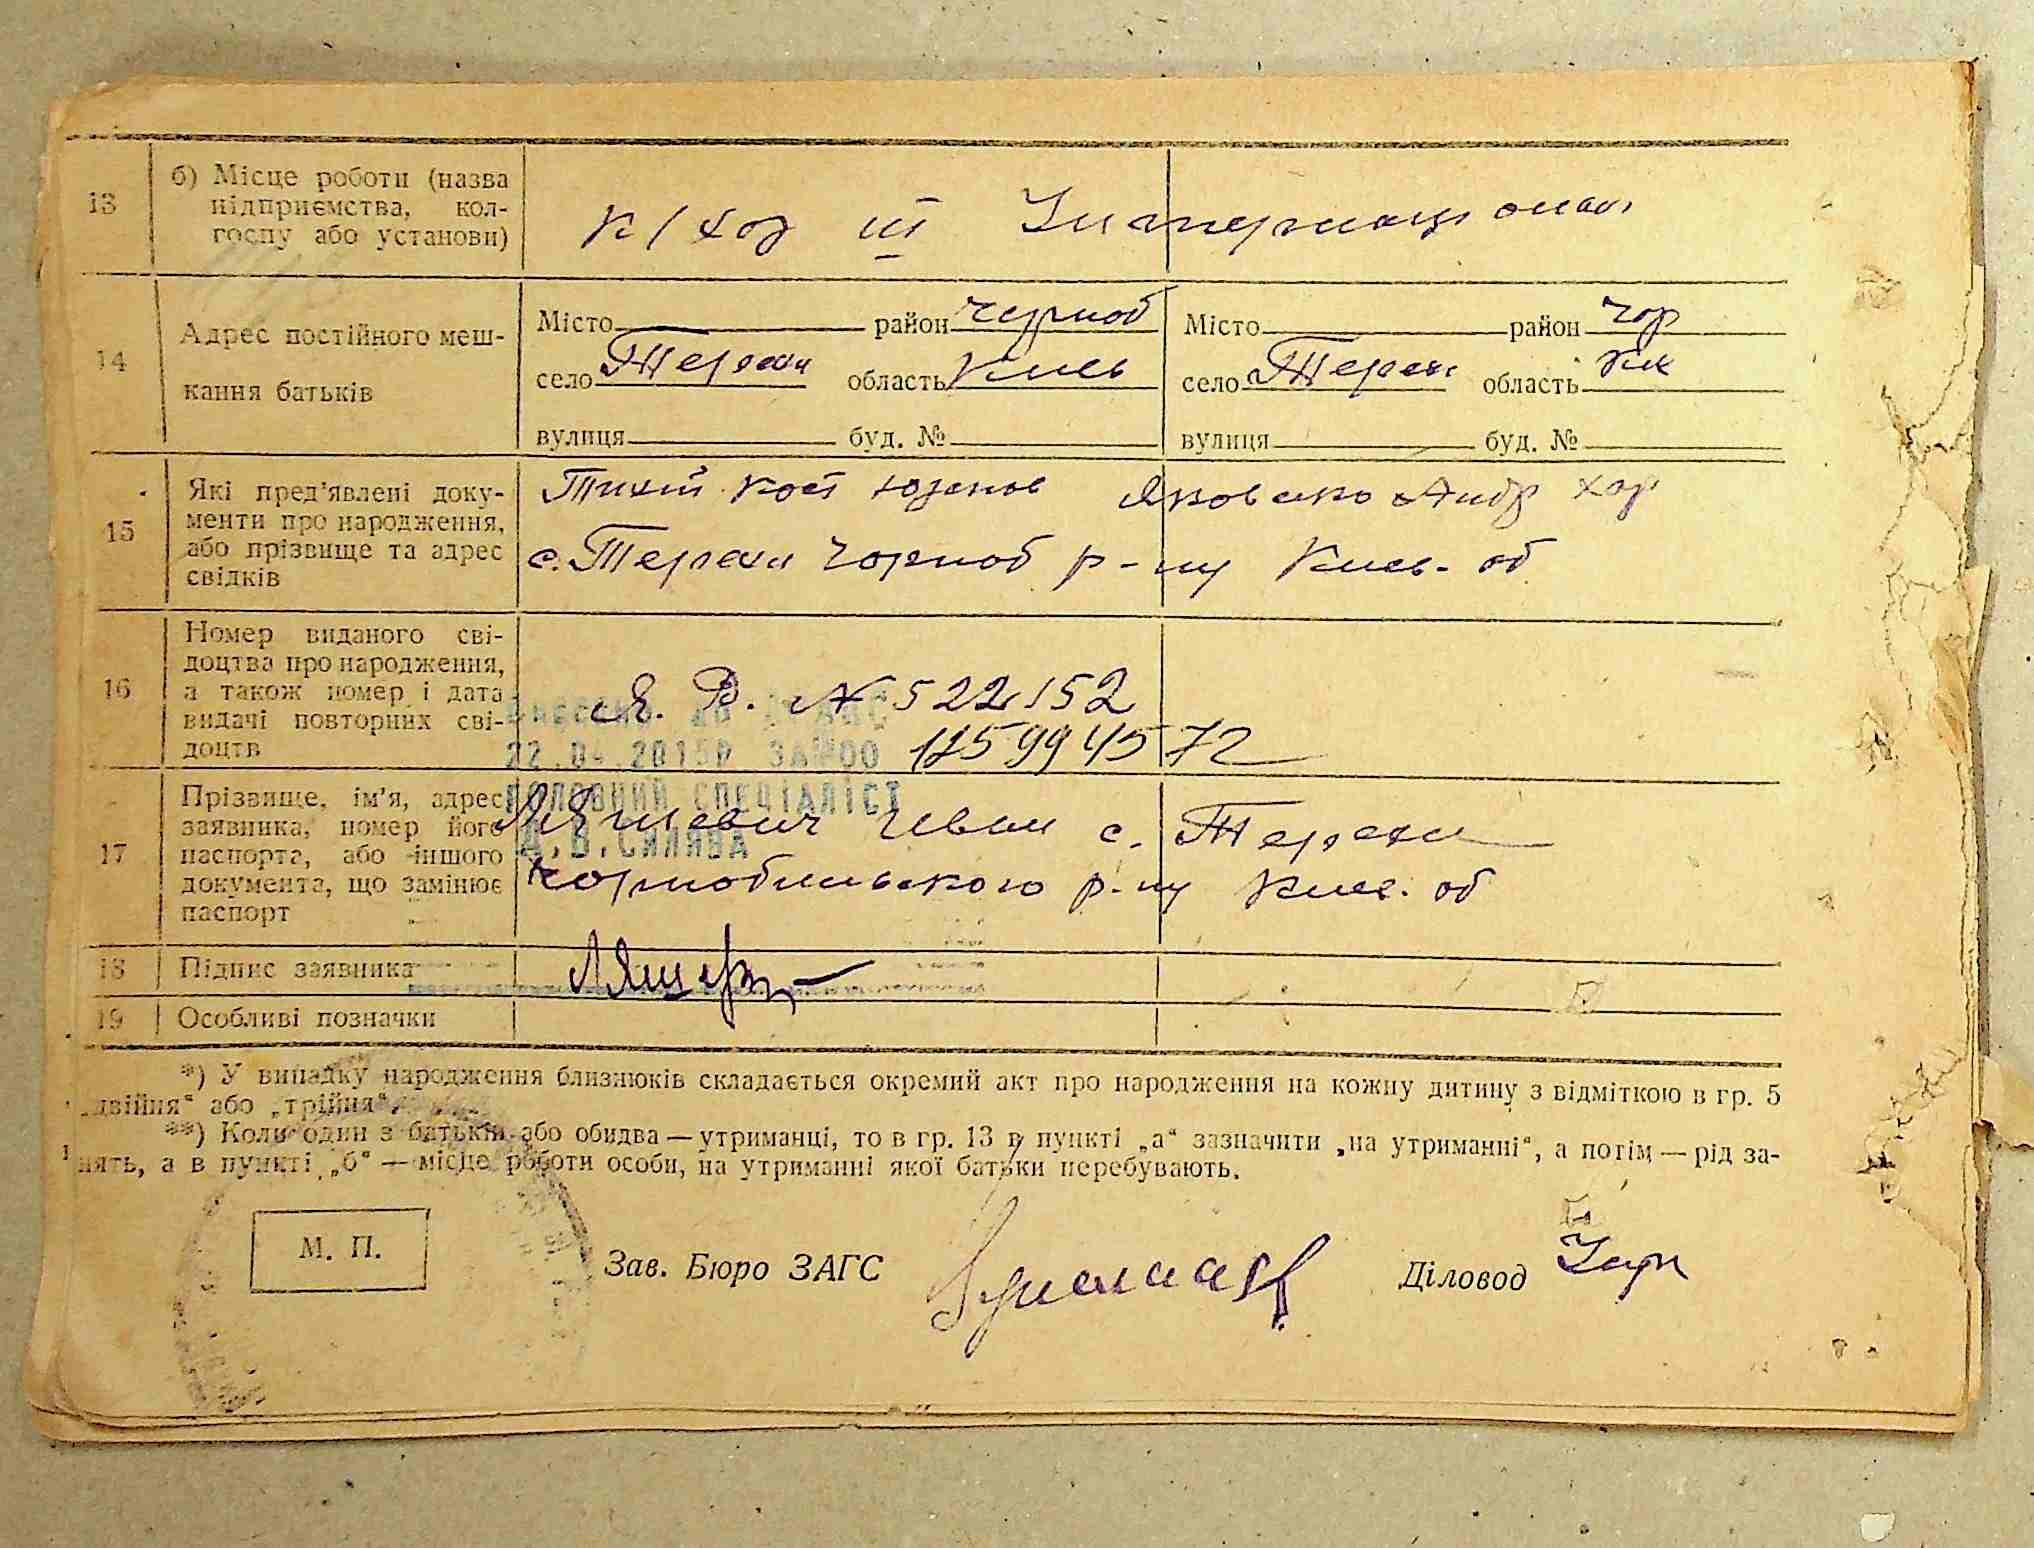 13
б) Місце роботи (назва
підприємства, кол-
госпу або установи)
к/ход III Интернационал
14
Адрес постійного меш-
кання батьків
Місто район Чорноб
село Терехи область Киев
вулиця буд. №
Місто район Чор
село Терехи область Ки
вулиця буд. №
15
Які пред'явлені доку-
менти про народження,
або прізвище та адрес
свідків
Тихий Яковенко Андр Хар
с. Терехи Чорноб р-ну Киев. об
16
Номер виданого сві-
доцтва про народження,
а також номер і дата
видачі повторних сві-
доцтв
Я. В. № 522152
17
Прізвище, ім'я, адрес
заявника, номер його
паспорта, або іншого
документа, що замінює
паспорт
Ляшевич Иван с. Терехи
Чорнобильского р-ну Киев. об
22.04.2015р
ГОЛОВНИЙ СПЕЦІАЛІСТ
18
Підпис заявника
19
Особливі позначки
*) У випадку народження близнюків складається окремий акт про народження на кожну дитину з відміткою в гр. 5
„двійня“ або „трійня“.
**) Коли один з батьків або обидва — утриманці, то в гр. 13 в пункті „а“ зазначити „на утриманні“, а потім — рід за-
нять, а в пункті „б“ — місце роботи особи, на утриманні якої батьки перебувають.
М. П.
Зав. Бюро ЗАГС
Діловод